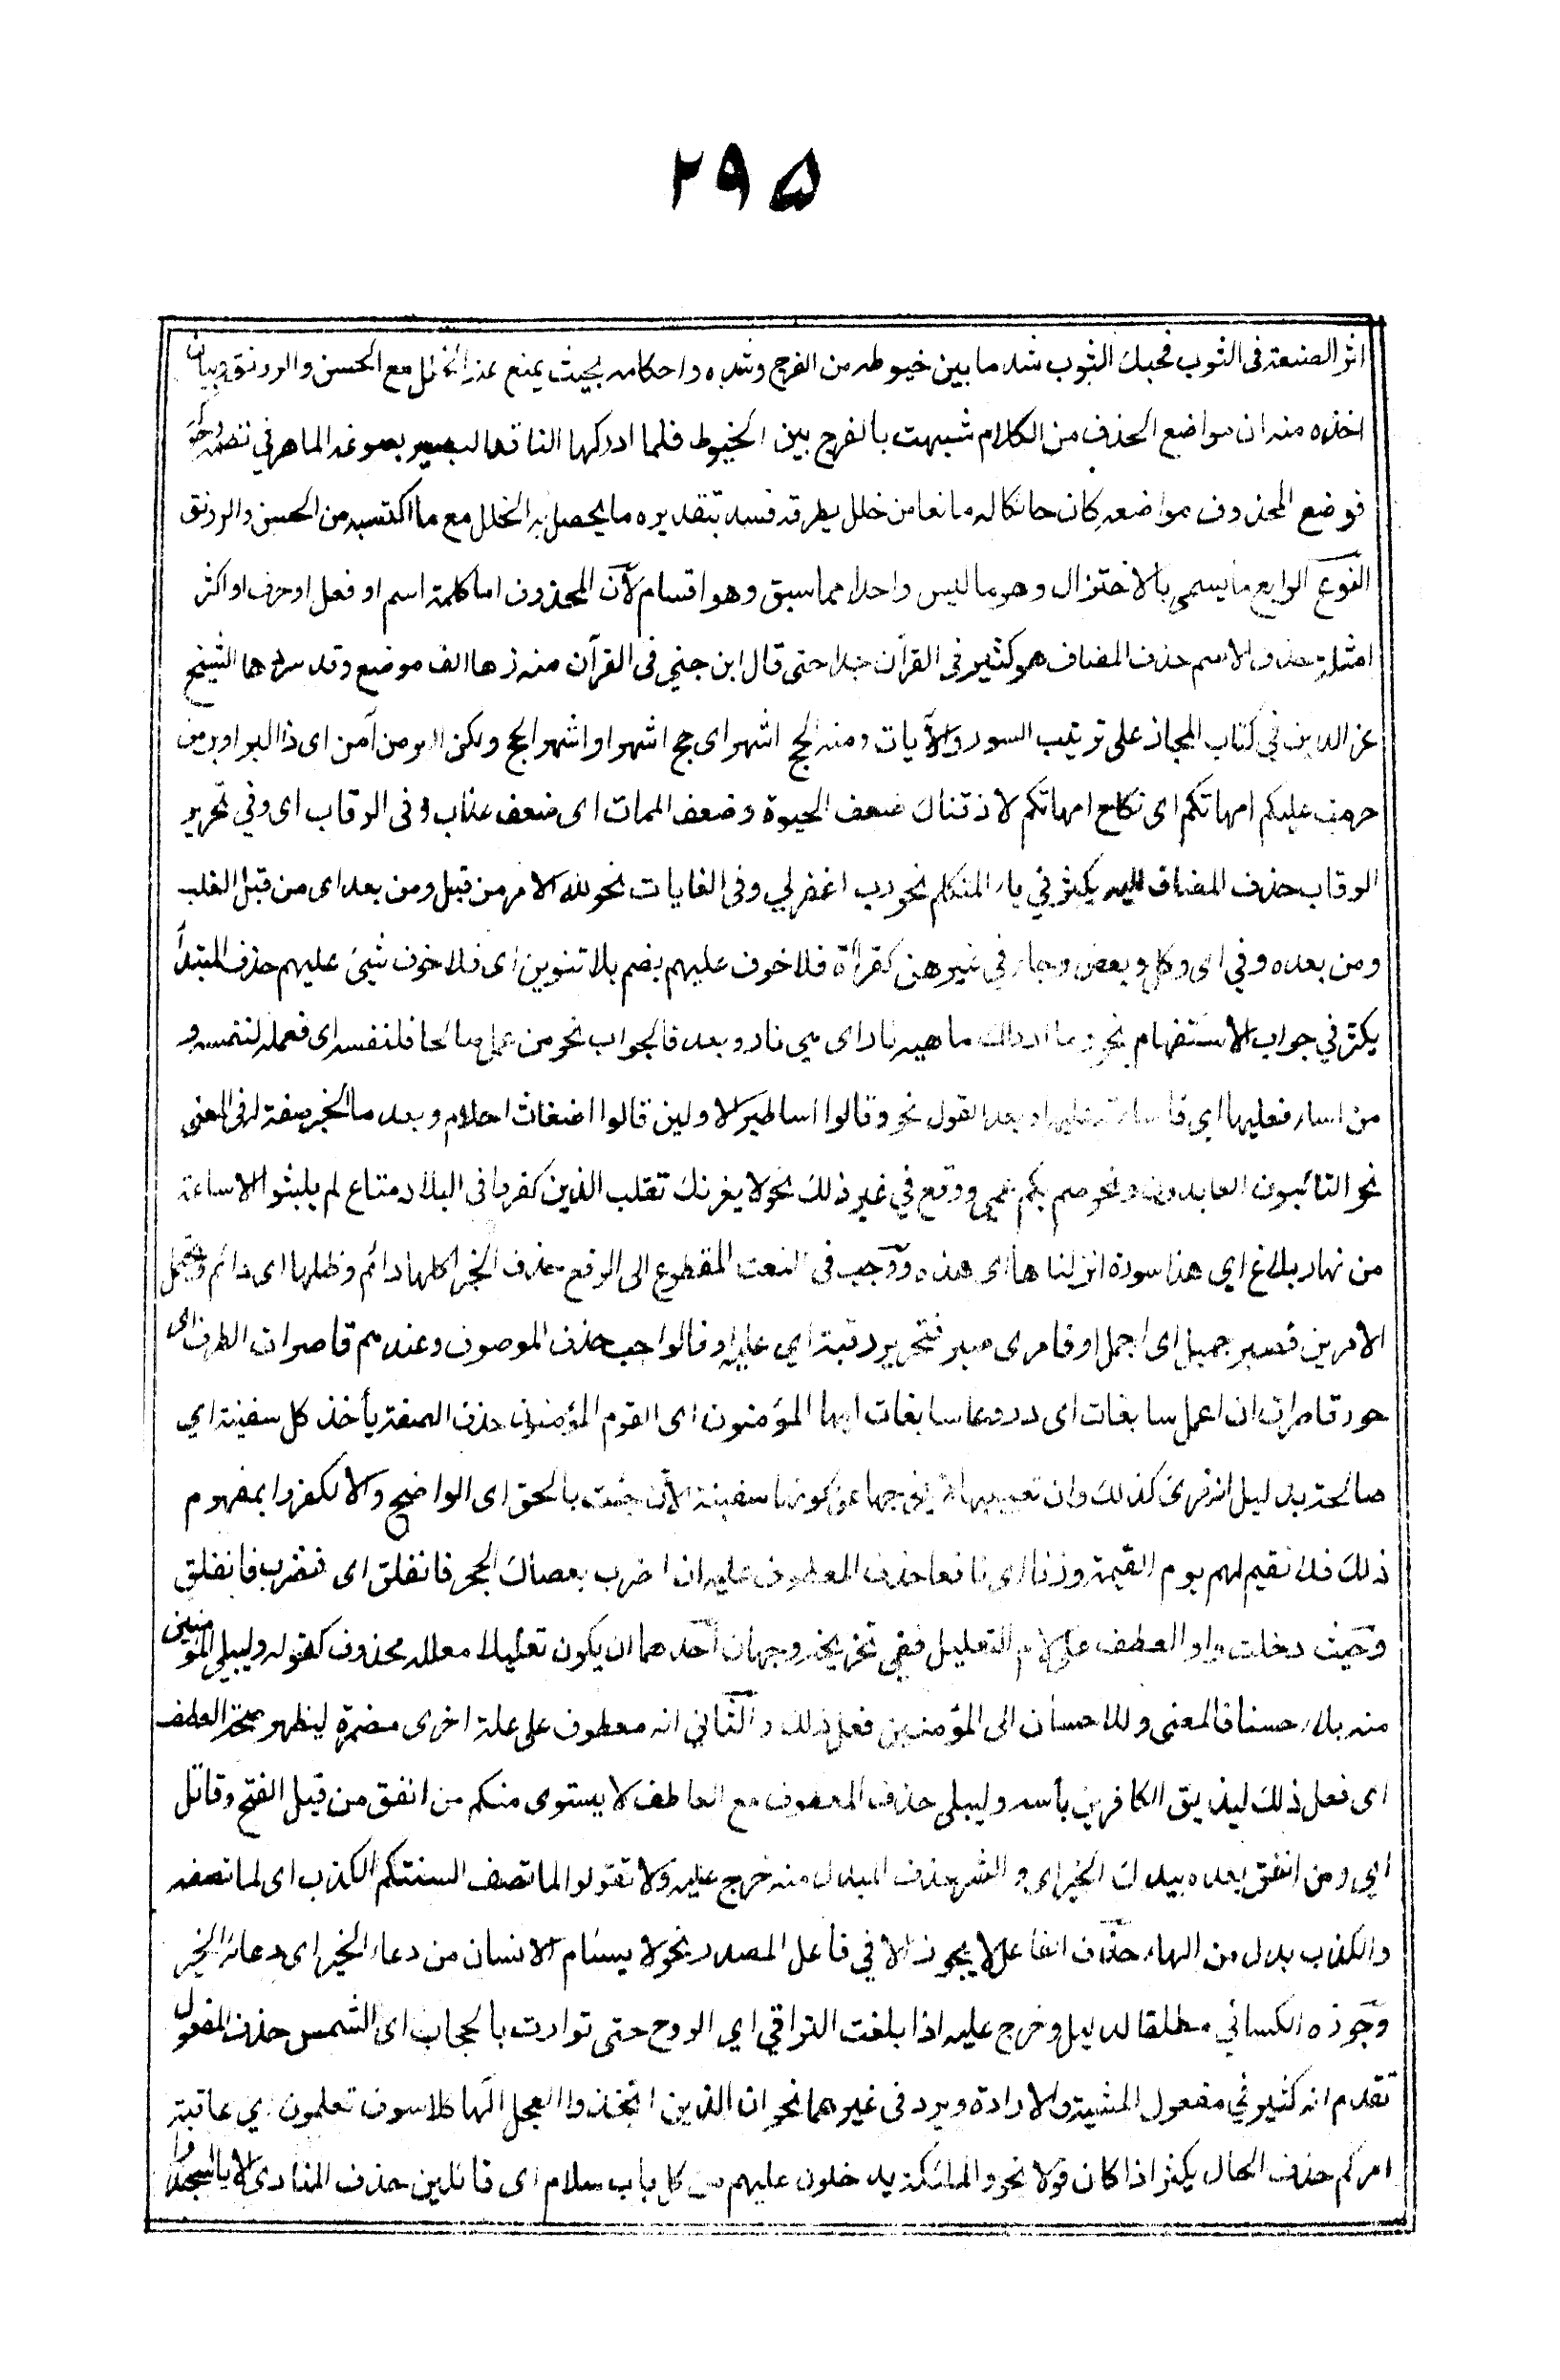 ٢٩۵
اثر الصنعة فى الثوب فحبك الثوب شد ما بين خيوطه من الفرج وشده واحكامه بحيث يمنع عنه الخلل مع الحسن والرونق وبيان
اخذه منه ان مواضع الحذف من الكلام شبهت بالفرج بين الخيوط فلما ادركها الناقد البصير بصوغه الماهر في نظمه وحوكه
فوضع المحذوف مواضعه كان حائكا له مانعا من خلل يطرقه فسد بتقديره ما يحصل به الخلل مع ما اكتسبه من الحسن والرونق
النوع الرابع ما يسمى بالاختزال وهو ما ليس واحدا مما سبق وهو اقسام لآن المحذوف اما كلمة اسم او فعل او حرف او اكثر
امثلة حذف الاسم حذف المضاف هو كثير فى القرآن جدا حتى قال ابن جني فى القرآن منه زها الف موضع وقد سردها الشيخ
عز الدين في كتاب المجاز على ترتيب السور والآيات ومنه الحج اشهر اى حج اشهر او اشهر الحج ولكن البر من آمن اى ذا البر او بر من
حرمت عليكم امهاتكم اى نكاح امهاتكم لاذقناك ضعف الحيوة وضعف الممات اى ضعف عذاب وفى الرقاب اى وفي تحرير
الرقاب حذف المضاف اليه يكثر في ياء المتكلم نحو رب اغفر لي وفى الغايات نحو لله الامر من قبل ومن بعد اى من قبل الغلب
ومن بعده وفي اى وكل وبعض وجاء في غيرهن كقرأة فلا خوف عليهم بضم بلا تنوين اى فلا خوف شيئ عليهم حذف المبتدأ
يكثر في جواب الاستفهام نحو وما ادراك ما هيه نار اى هي نار وبعد فا الجواب نحو من عمل صالحا فلنفسه اى فعمله لنفسه و
من اساء فعليها اي فاساءته عليها وبعد القول نحو وقالوا اساطير الاولين قالوا اضغاث احلام وبعد ما الخبر صفة له فى المعنى
نحو التائبون العابدون ونحو صم بكم عمي ووقع في غير ذلك نحو لا يغرنك تقلب الذين كفروا فى البلاد متاع لم يلبثوا الا ساعة
من نهار بلاغ اي هذا سورة انزلناها اى هذه ووجب فى النعت المقطوع الى الرفع حذف الخبر اكلها دائم وظلها اى دائم ويحتمل
الامرين فصبر جميل اى اجمل او فامرى صبر فتحرير رقبة اي عليه او فالواجب حذف الموصوف وعندهم قاصرات الطرف اى
حور قاصرات ان اعمل سابغات اى دروعا سابغات ايها المؤمنون اى القوم المؤمنون حذف الصفة يأخذ كل سفينة اي
صالحة بدليل انه قرئ كذلك وان تعييبها لا يخرجها عن كونها سفينة الآن جئت بالحق اى الواضح والا لكفروا بمفهوم
ذلك فلا نقيم لهم يوم القيمة وزنا اى نافعا حذف المعطوف عليه ان اضرب بعصاك البحر فانفلق اى فضرب فانفلق
وحيث دخلت واو العطف على لام التعليل ففي تخريجه وجهان احدهما ان يكون تعليلا معلله محذوف كقوله وليبلي المؤمنين
منه بلاء حسنا فالمعنى وللاحسان الى المؤمنين فعل ذلك والثاني انه معطوف على علة اخرى مضمرة ليظهر صحة العطف
اى فعل ذلك ليذيق الكافرين بأسه وليبلى حذف المعطوف مع العاطف لا يستوى منكم من انفق من قبل الفتح وقاتل
اي ومن انفق بعده بيدك الخير اى والشر حذف المبدل منه خرج عليه ولا تقولوا لما تصف السنتكم الكذب اى لما تصفه
والكذب بدل من الهاء حذف الفاعل لا يجوز الا في فاعل المصدر نحو لا يسئام الانسان من دعاء الخير اى دعائه الخير
وجوزه الكسائي مطلقا لدليل وخرج عليه اذا بلغت التراقي اي الروح حتى توارت بالحجاب اى الشمس حذف المفعول
تقدم انه كثير في مفعول المشية والارادة ويرد فى غيرهما نحو ان الذين اتخذوا العجل الها كلا سوف تعلمون اي عاقبة
امركم حذف الحال يكثر اذا كان قولا نحو والملئكة يدخلون عليهم من كل باب سلام اى قائلين حذف المنادى الا يا اسجدوا